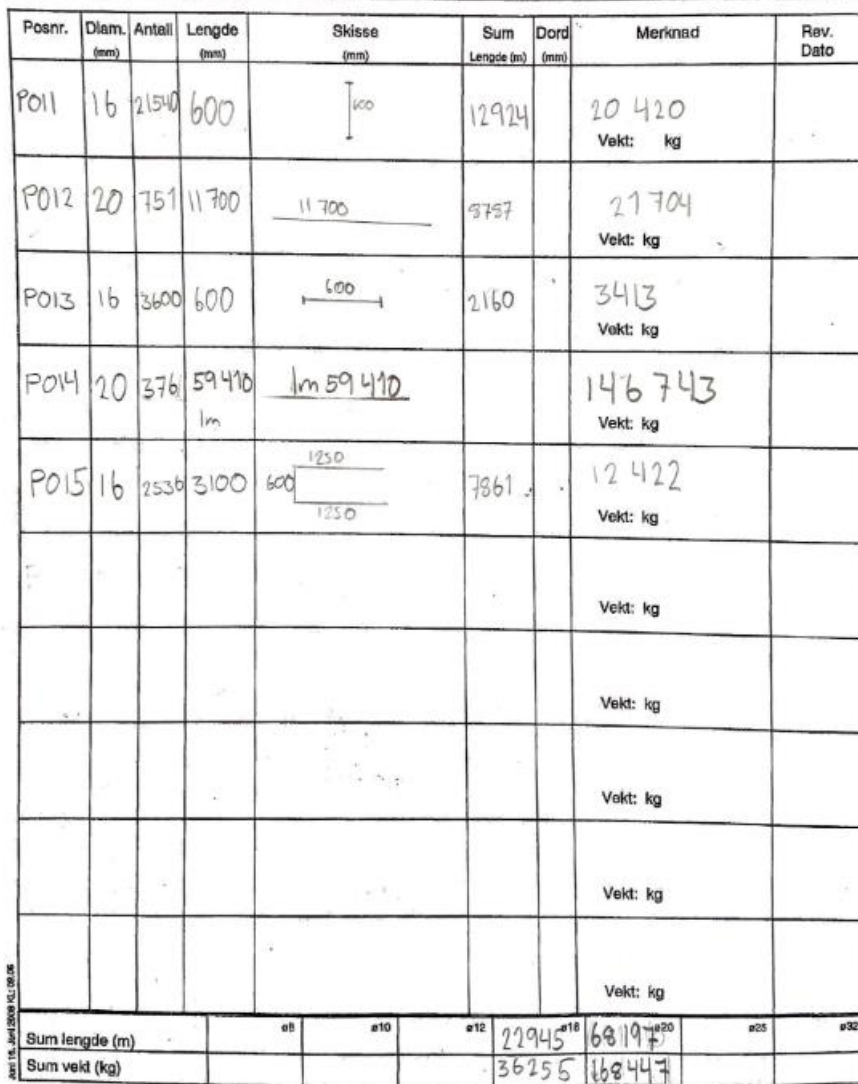 Posnr. Diam. (mm) Antall Lengde (mm) Skisse (mm) Sum Lengde (m) Dord (mm) Merknad Rev. Dato
P011 16 21540 600 600 12924 20 420
Vekt: kg
P012 20 751 11 700 11 700 8787 21 704
Vekt: kg
P013 16 3600 600 600 2160 3413
Vekt: kg
P014 20 376 59 410 lm lm 59 410 146 743
Vekt: kg
P015 16 2536 3100 1250 600 1250 7861 12 422
Vekt: kg
Vekt: kg
Vekt: kg
Vekt: kg
Vekt: kg
Vekt: kg
Sum lengde (m) ø8 ø10 ø12 22945 ø16 68197 ø20 ø25 ø32
Sum vekt (kg) 36255 168447